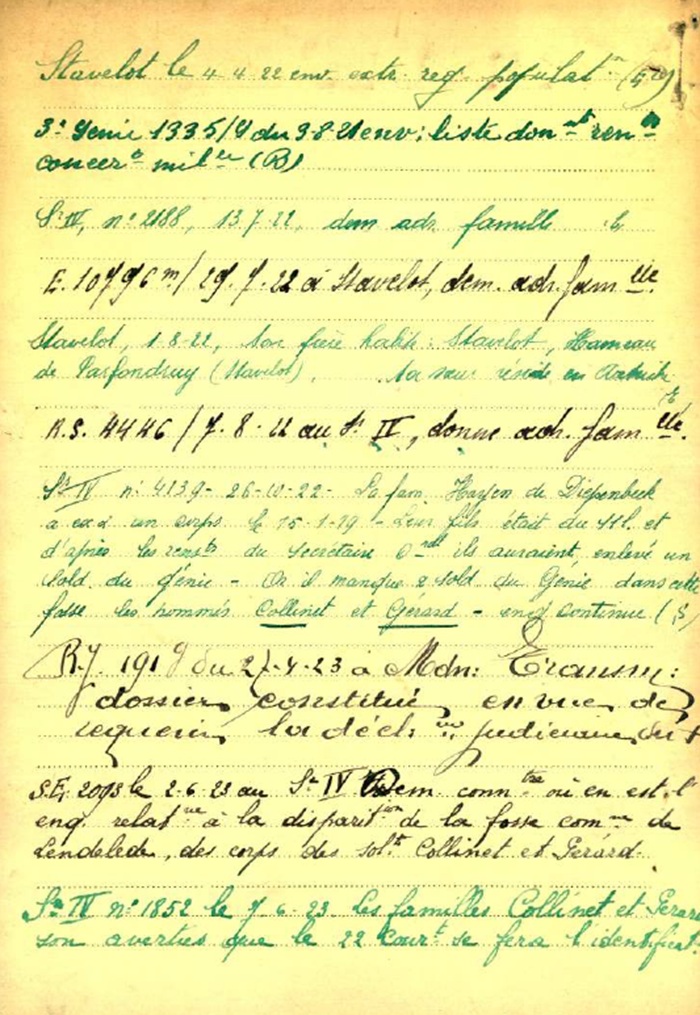 Stavelot le 4 4 22 env. extr. reg. populat.on
3e Genie 1335/4 du 9-8-21 env: liste don.nt ren.
concer.t mil.re (B)
Sn IV, n° 2188, 13 7-22, dem adr. famille
E. 10796 m / 29. 7. 22 à Stavelot, dem. adr. fam.lle
Stavelot, 1-8-22, son frère habite Stavelot, Hameau
de Parfondruy (Stavelot). sa sœur réside en Autriche
R.S. 4446 / 7. 8. 22 au Sn IV, donne adr. fam.lle
Sn IV n° 4139- 26-10-22- La fam. de Diepenbeek
a ex. un corps le 15-1-19 - Leur fils était du 11 l. et
d'après les rensts du secrétaire ils auraient enlevé un
sold. du génie - Or il manque 2 sold du Génie dans cette
fosse les nommés Collinet et Gérard - enq. continue
R.J. 191 du 27-4-23 à Mdn:
dossier constitué en vue de
requérir la décl.on judiciaire du
S.E. 2093 le 2-6-23 au Sn IV Dem conntre où en est l'
enq. relat.ve à la disparit.ion de la fosse com.ne de
Lendelede, des corps des sol.ts Collinet et Gérard.
Sn IV n° 1852 le 7 6-23 Les familles Collinet et Gerard
son averties que le 22 Court se fera l'identificat.